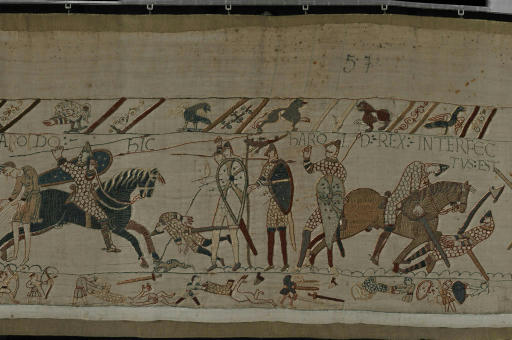 57
AROLDO: hIC hARO D: REX: INTERFEC
TVS: EST